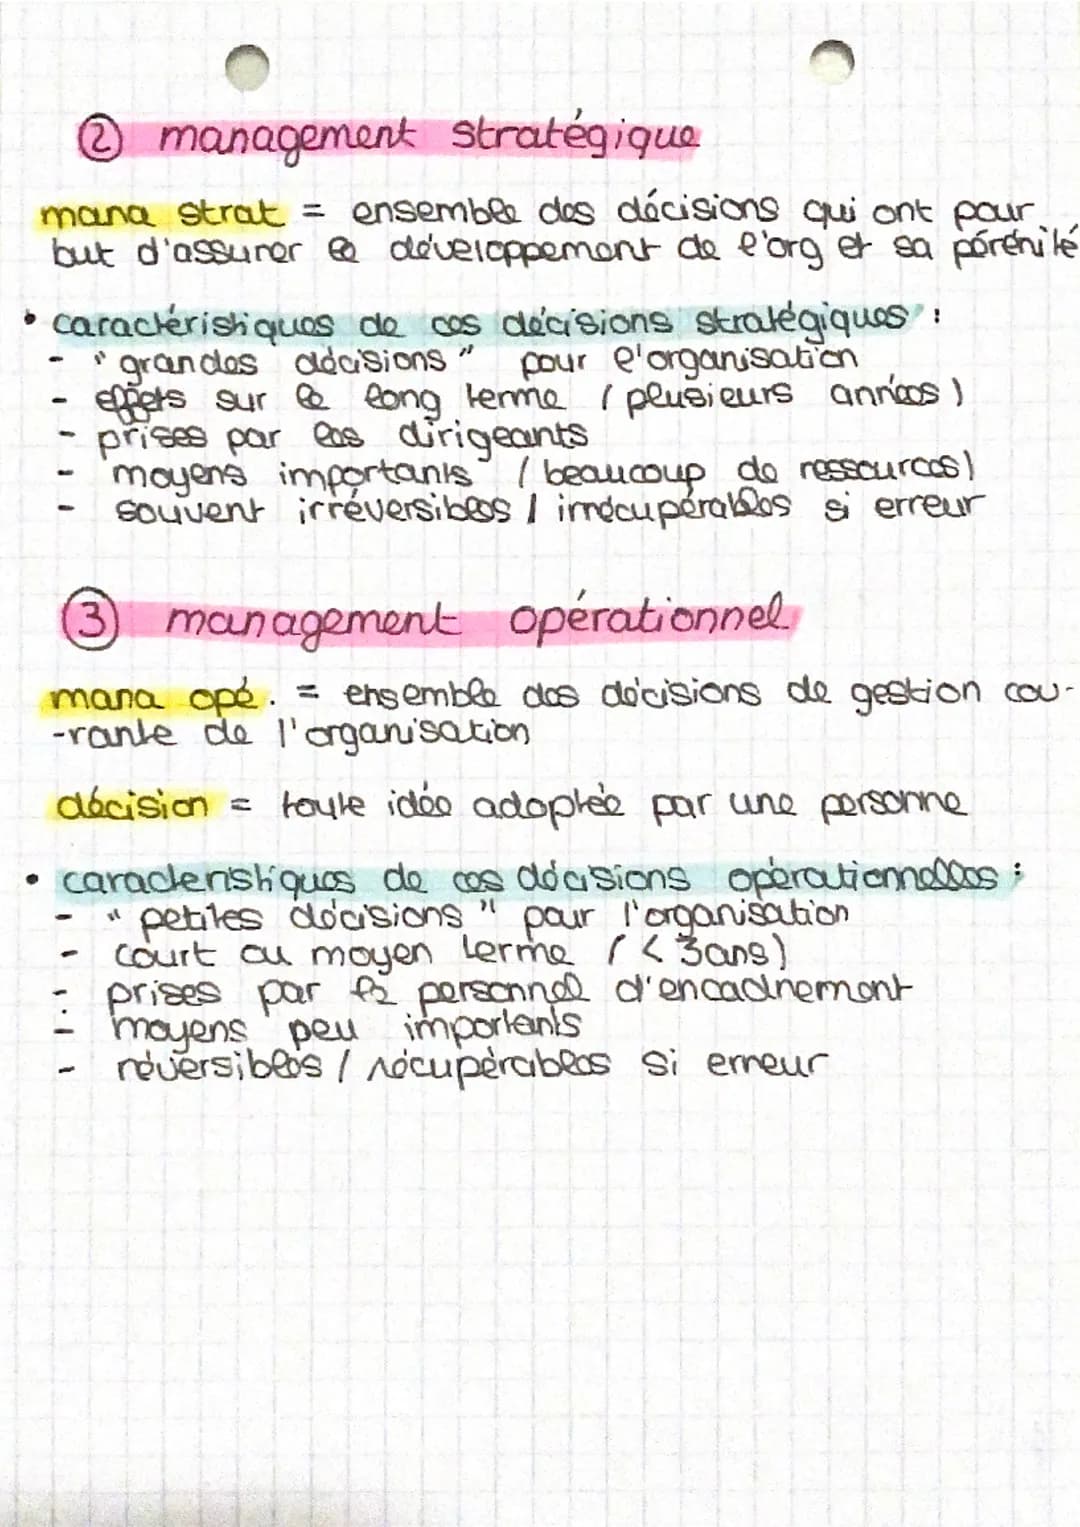 ② management stratégique
mana strat = ensemble des décisions qui ont pour
but d'assurer le développement de l'org et sa pérénité
• caractéristiques de ces décisions stratégiques :
- "grandes décisions" pour l'organisation
- effets sur le long terme (plusieurs années)
- prises par les dirigeants
- moyens importants (beaucoup de ressources)
- souvent irréversibles / irrécupérables si erreur
③ management opérationnel
mana opé. = ensemble des décisions de gestion cou-
-rante de l'organisation
décision = toute idée adoptée par une personne
• caracteristiques de ces décisions opérationnelles :
- "petites décisions" pour l'organisation
- court ou moyen terme (< 3ans)
- prises par personnel d'encadrement
- moyens peu importants
- réversibles / récupérables si erreur